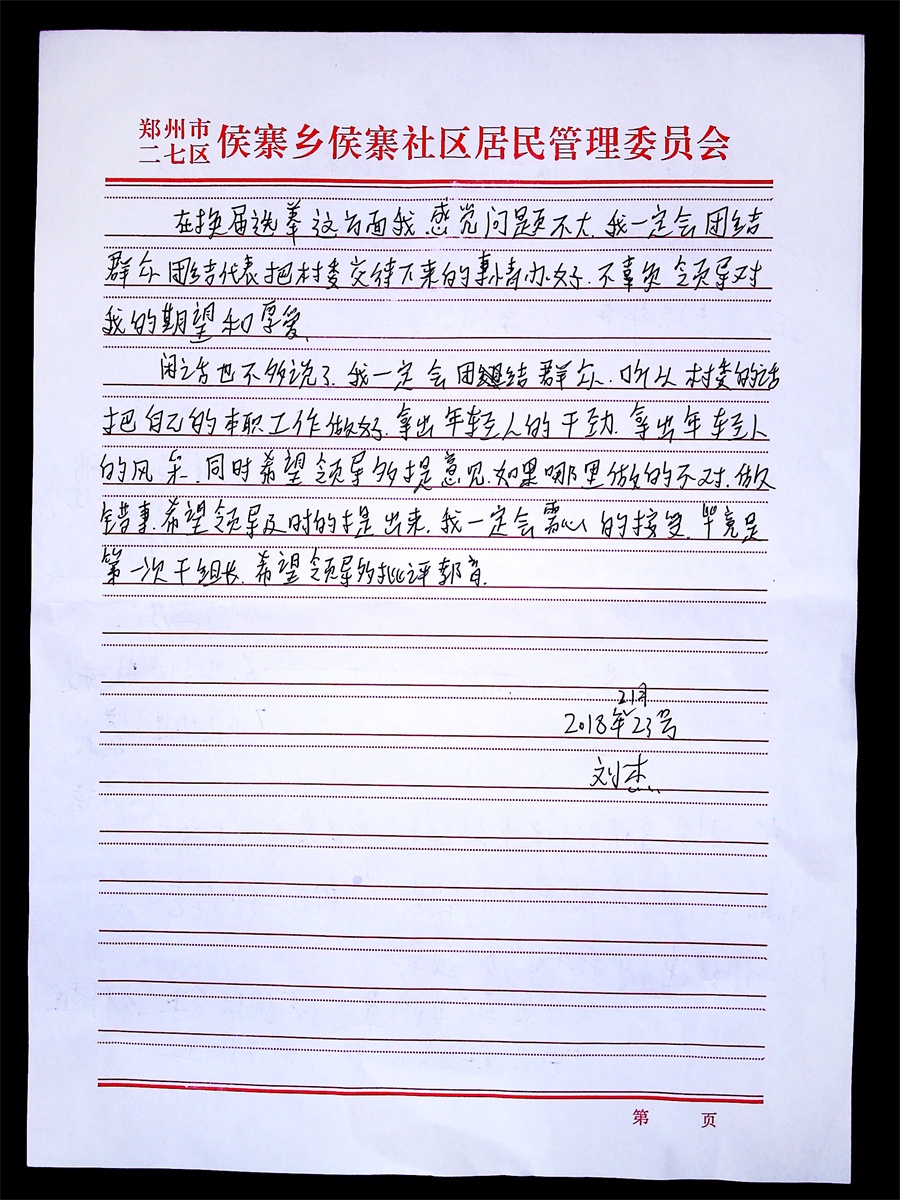 郑州市
二七区 侯寨乡侯寨社区居民管理委员会
在换届选举这方面我感觉问题不大.我一定会团结
群众.团结代表把村委交待下来的事情办好.不辜负领导对
我的期望和厚爱.
闲话也不多说了.我一定会团结群众.听从村委的话
把自己的本职工作做好.拿出年轻人的干劲.拿出年轻人
的风采.同时希望领导多提意见.如果哪里做的不对.做
错事.希望领导及时的提出来.我一定会虚心的接受.毕竟是
第一次干组长.希望领导多批评教育.
2018年23号
刘杰
第 页